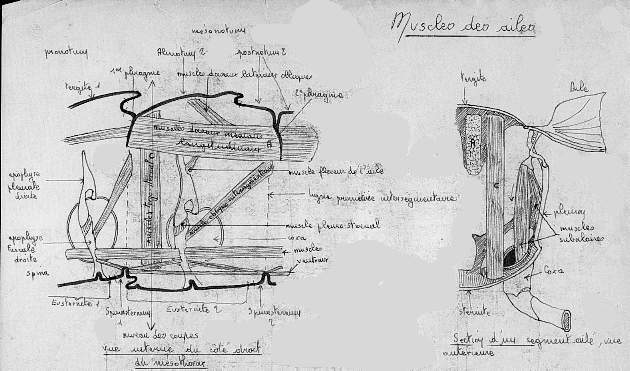 Muscles des ailes
mesonotum
pronotum
Alinotum 2
postnotum 2
1er phragme
muscle dorsaux latéraux obliques
tergite 1
2e phragme
muscles dorsaux médians
longitudinaux A
apophyse
pleurale
droite
muscle fléchisseur de l'aile
ligne primitive intersegmentaire
muscle pleuro-sternal
coxa
apophyse
furcale
droite
muscles
ventraux
spina
Eusternite 1
Eusternite 2
Spinasternum
1
Spinasternum
2
niveau des coupes
vue interne du côté droit
du mesothorax
tergite
Aile
A
C
pleuron
muscles
subalaires
Coxa
sternite
Section d'un segment ailé, vue
antérieure